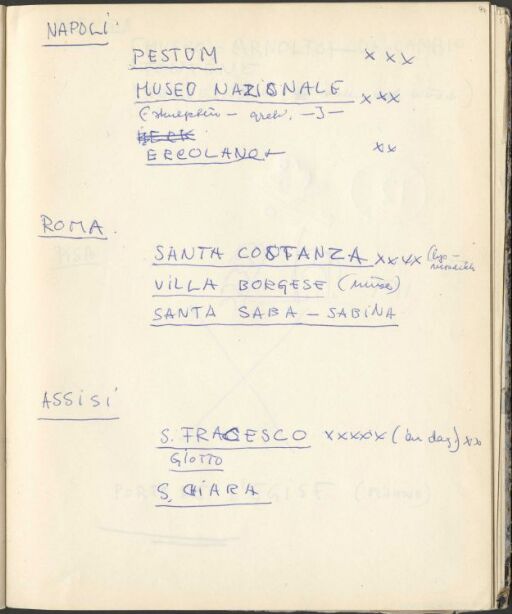 NAPOLI:
PESTUM xxx
MUSEO NAZIONALE xxx
ERCOLANO xx
ROMA.
SANTA COSTANZA xxxx
VILLA BORGESE (musée)
SANTA SABA - SABINA
ASSISI
S. FRACESCO xxxxx (en dag) xx
GIOTTO
S. CHIARA